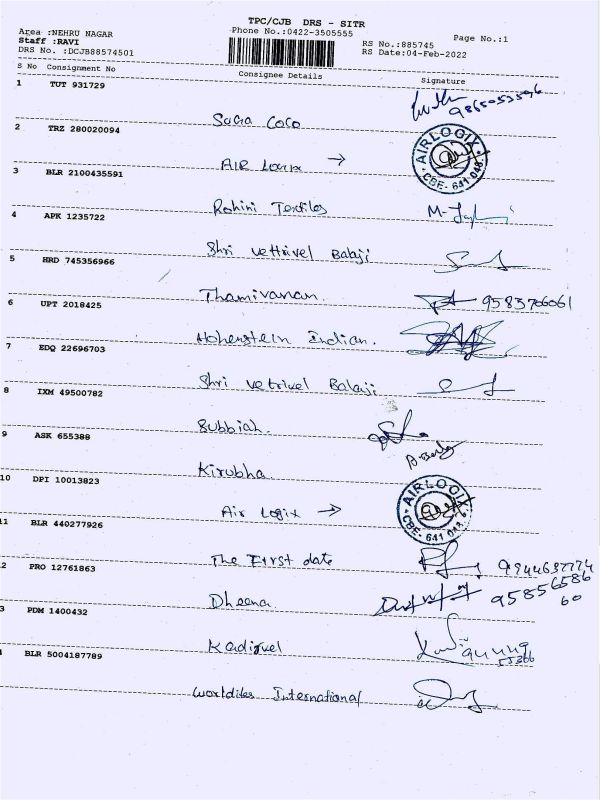 TPC/CJB DRS - SITR
Area :NEHRU NAGAR
Phone No.:0422-3505555
Page No.:1
Staff :RAVI
RS No.:885745
DRS No. :DCJB88574501
RS Date:04-Feb-2022
S No Consignment No
Consignee Details
Signature
1 TUT 931729
Coco
9865053596
2 TRZ 280020094
AIR Logix →
AIRLOGIX
CBE- 641 048.
3 BLR 2100435591
Rohini Textiles
4 APK 1235722
Shri Vettrivel Balaji
5 HRD 745356966
Thamivanan.
9583706061
6 UPT 2018425
Hohenstein Indian.
7 EDQ 22696703
Shri Vetrivel Balaji
8 IXM 49500782
Subbiah.
9 ASK 655388
Kirubha
10 DPI 10013823
Air Logix →
AIRLOGIX
CBE- 641 048.
11 BLR 440277926
The First date
2 PRO 12761863
Dheena
95856586
60
3 PDM 1400432
Kadirvel
BLR 5004187789
International